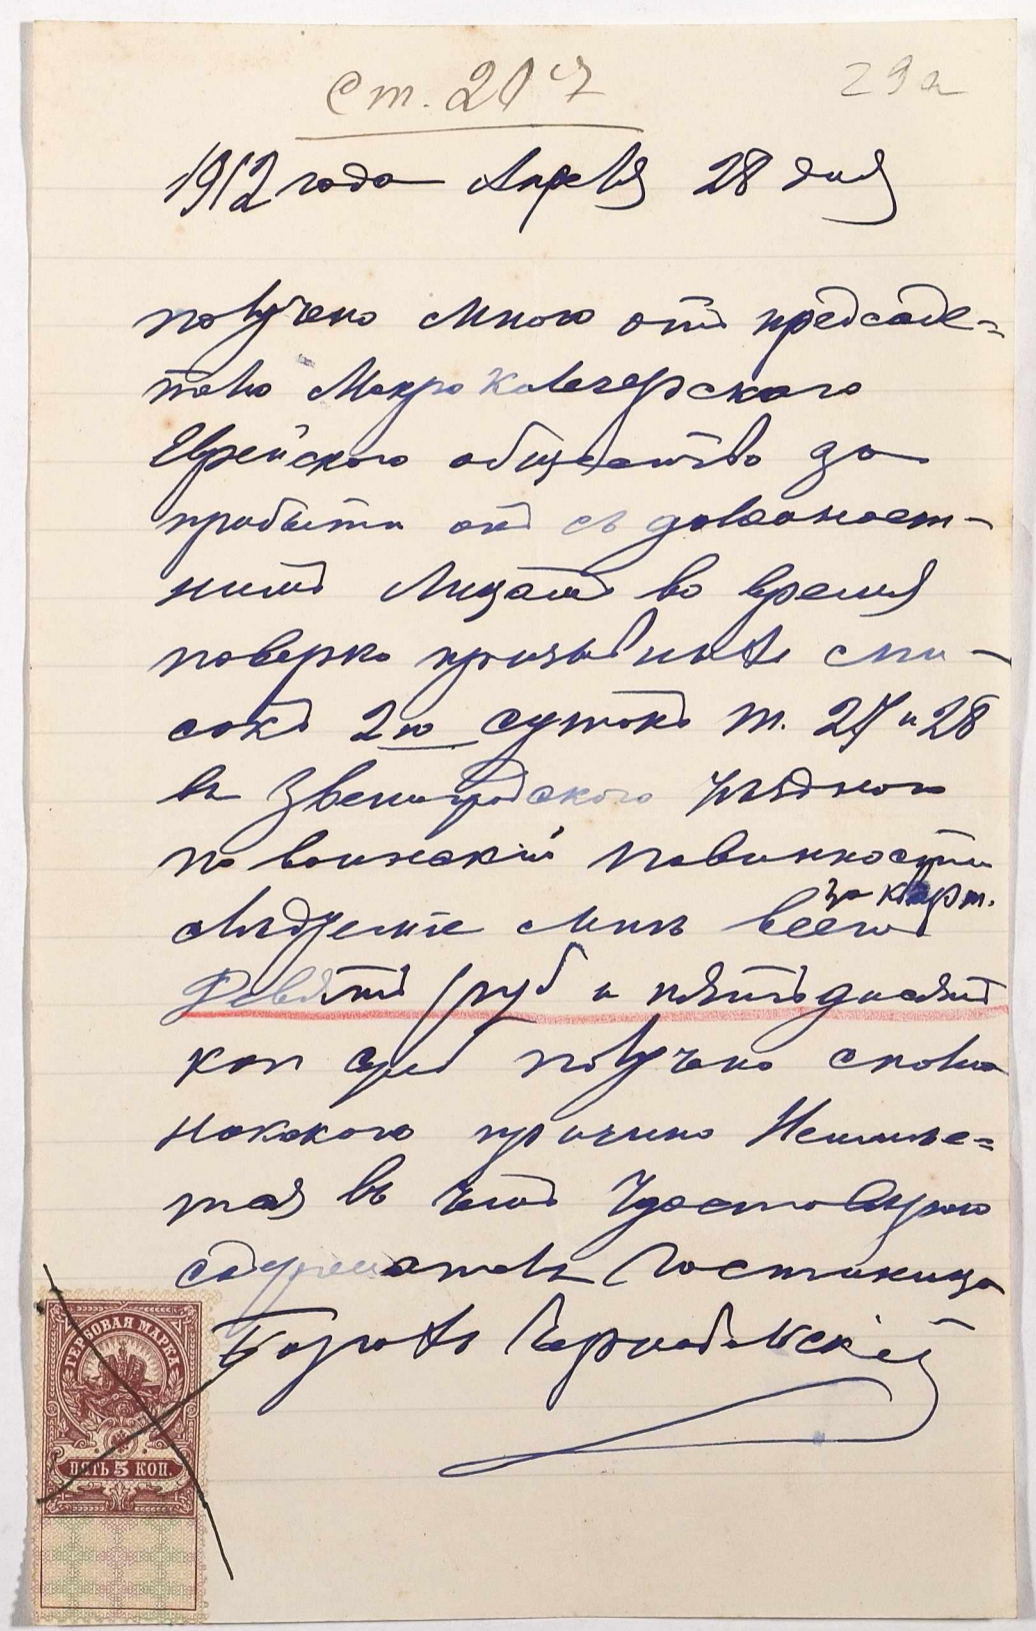 ст. 20
29а
1912 года Апреля 28 дня
получено мною отъ председе=
теля Мокро Калигерского
Еврейского общество за
прибыти съ должност-
нимъ Лицамъ во время
поверко призывныхъ спи-
сокъ 2ю сутокъ т. 27 и 28
въ Звенигродского уезднои
по воинскій повинности
следуемые мнъ всего
за карт.
Девять руб и пятьдисятъ
коп сум получено сполна
някокого причино Неимее=
тая въ чемъ Удостовирую
содержатель Гостиница
Борохъ Чернобельскій
ГЕРБОВАЯ МАРКА
ПЯТЬ 5 КОП.